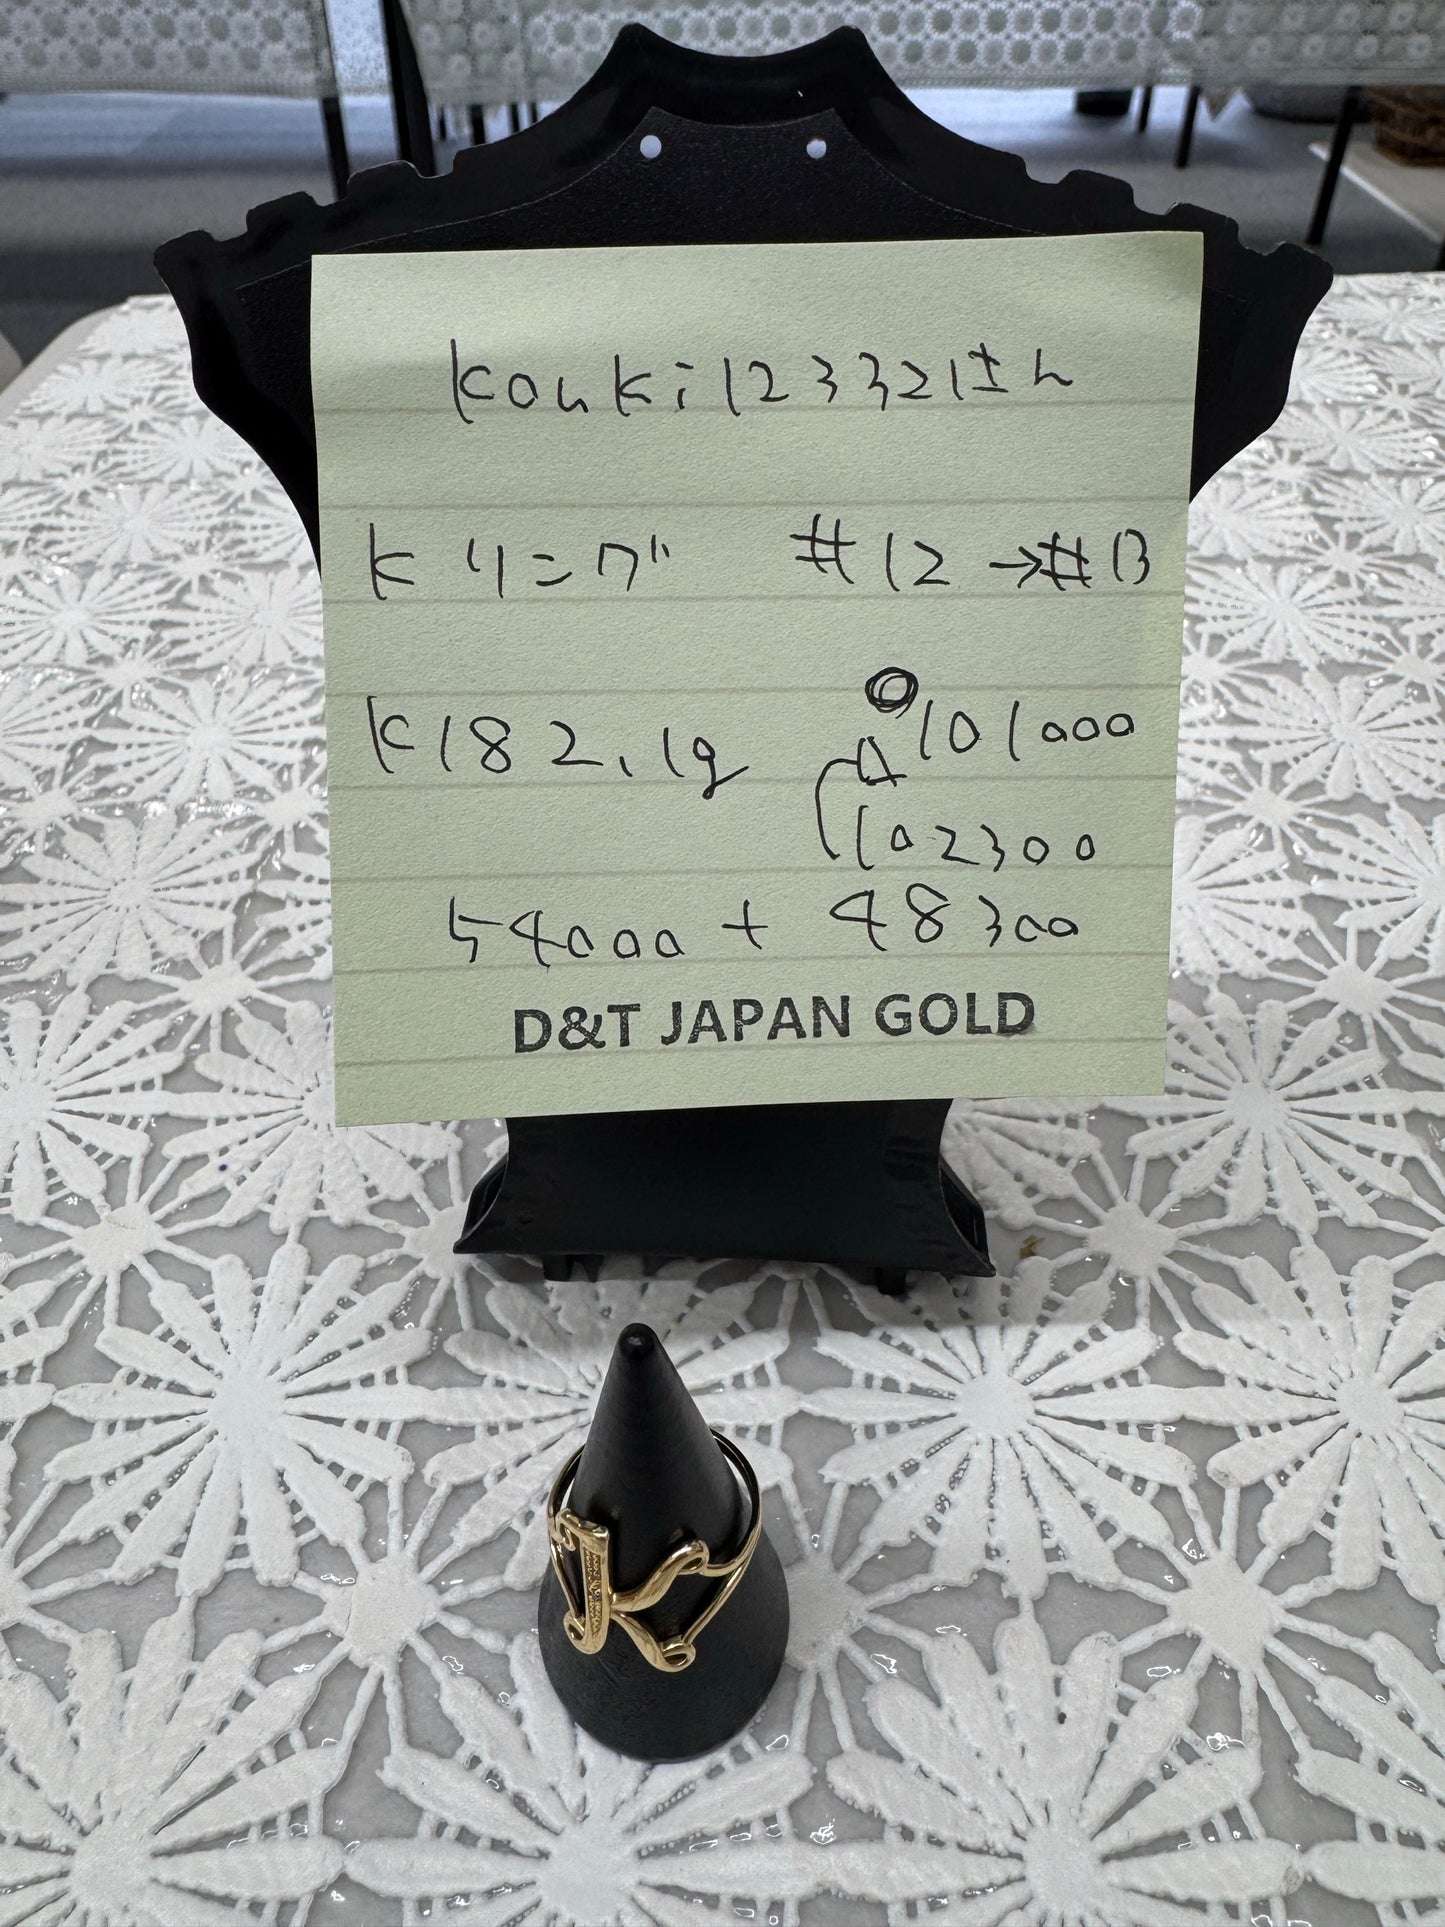 Kouki123321さん
Kリング #12→#13
K18 2.1g ◎101000
102300
54000+48300
D&T JAPAN GOLD